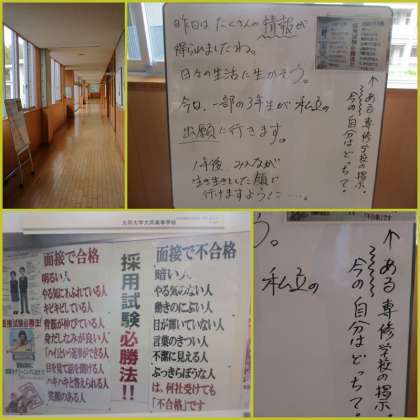 昨日は たくさんの 情報が
得られましたね。
日々の生活に生かそう。
今日、一部の3年生が 私立の
出願に行きます。
1年後 みんなが
生き生きとした顔で
行けますように…。
↑ある専修学校の掲示。
今の自分はどっち?
面接で合格
明るい人
やる気にあふれている人
キビキビしている人
背筋が伸びている人
身だしなみが良い人
「ハイ」という返事ができる人
目を見て話を聞ける人
ハキハキと答えられる人
笑顔のある人
採用試験必勝法!!
面接で不合格
暗い人
やる気のない人
動きのにぶい人
目が輝いていない人
言葉のきつい人
不潔に見える人
ぶっきらぼうな人
は、何社受けても
「不合格」です
う。
私立の
↑ある専修学校の掲示。
今の自分はどっち?